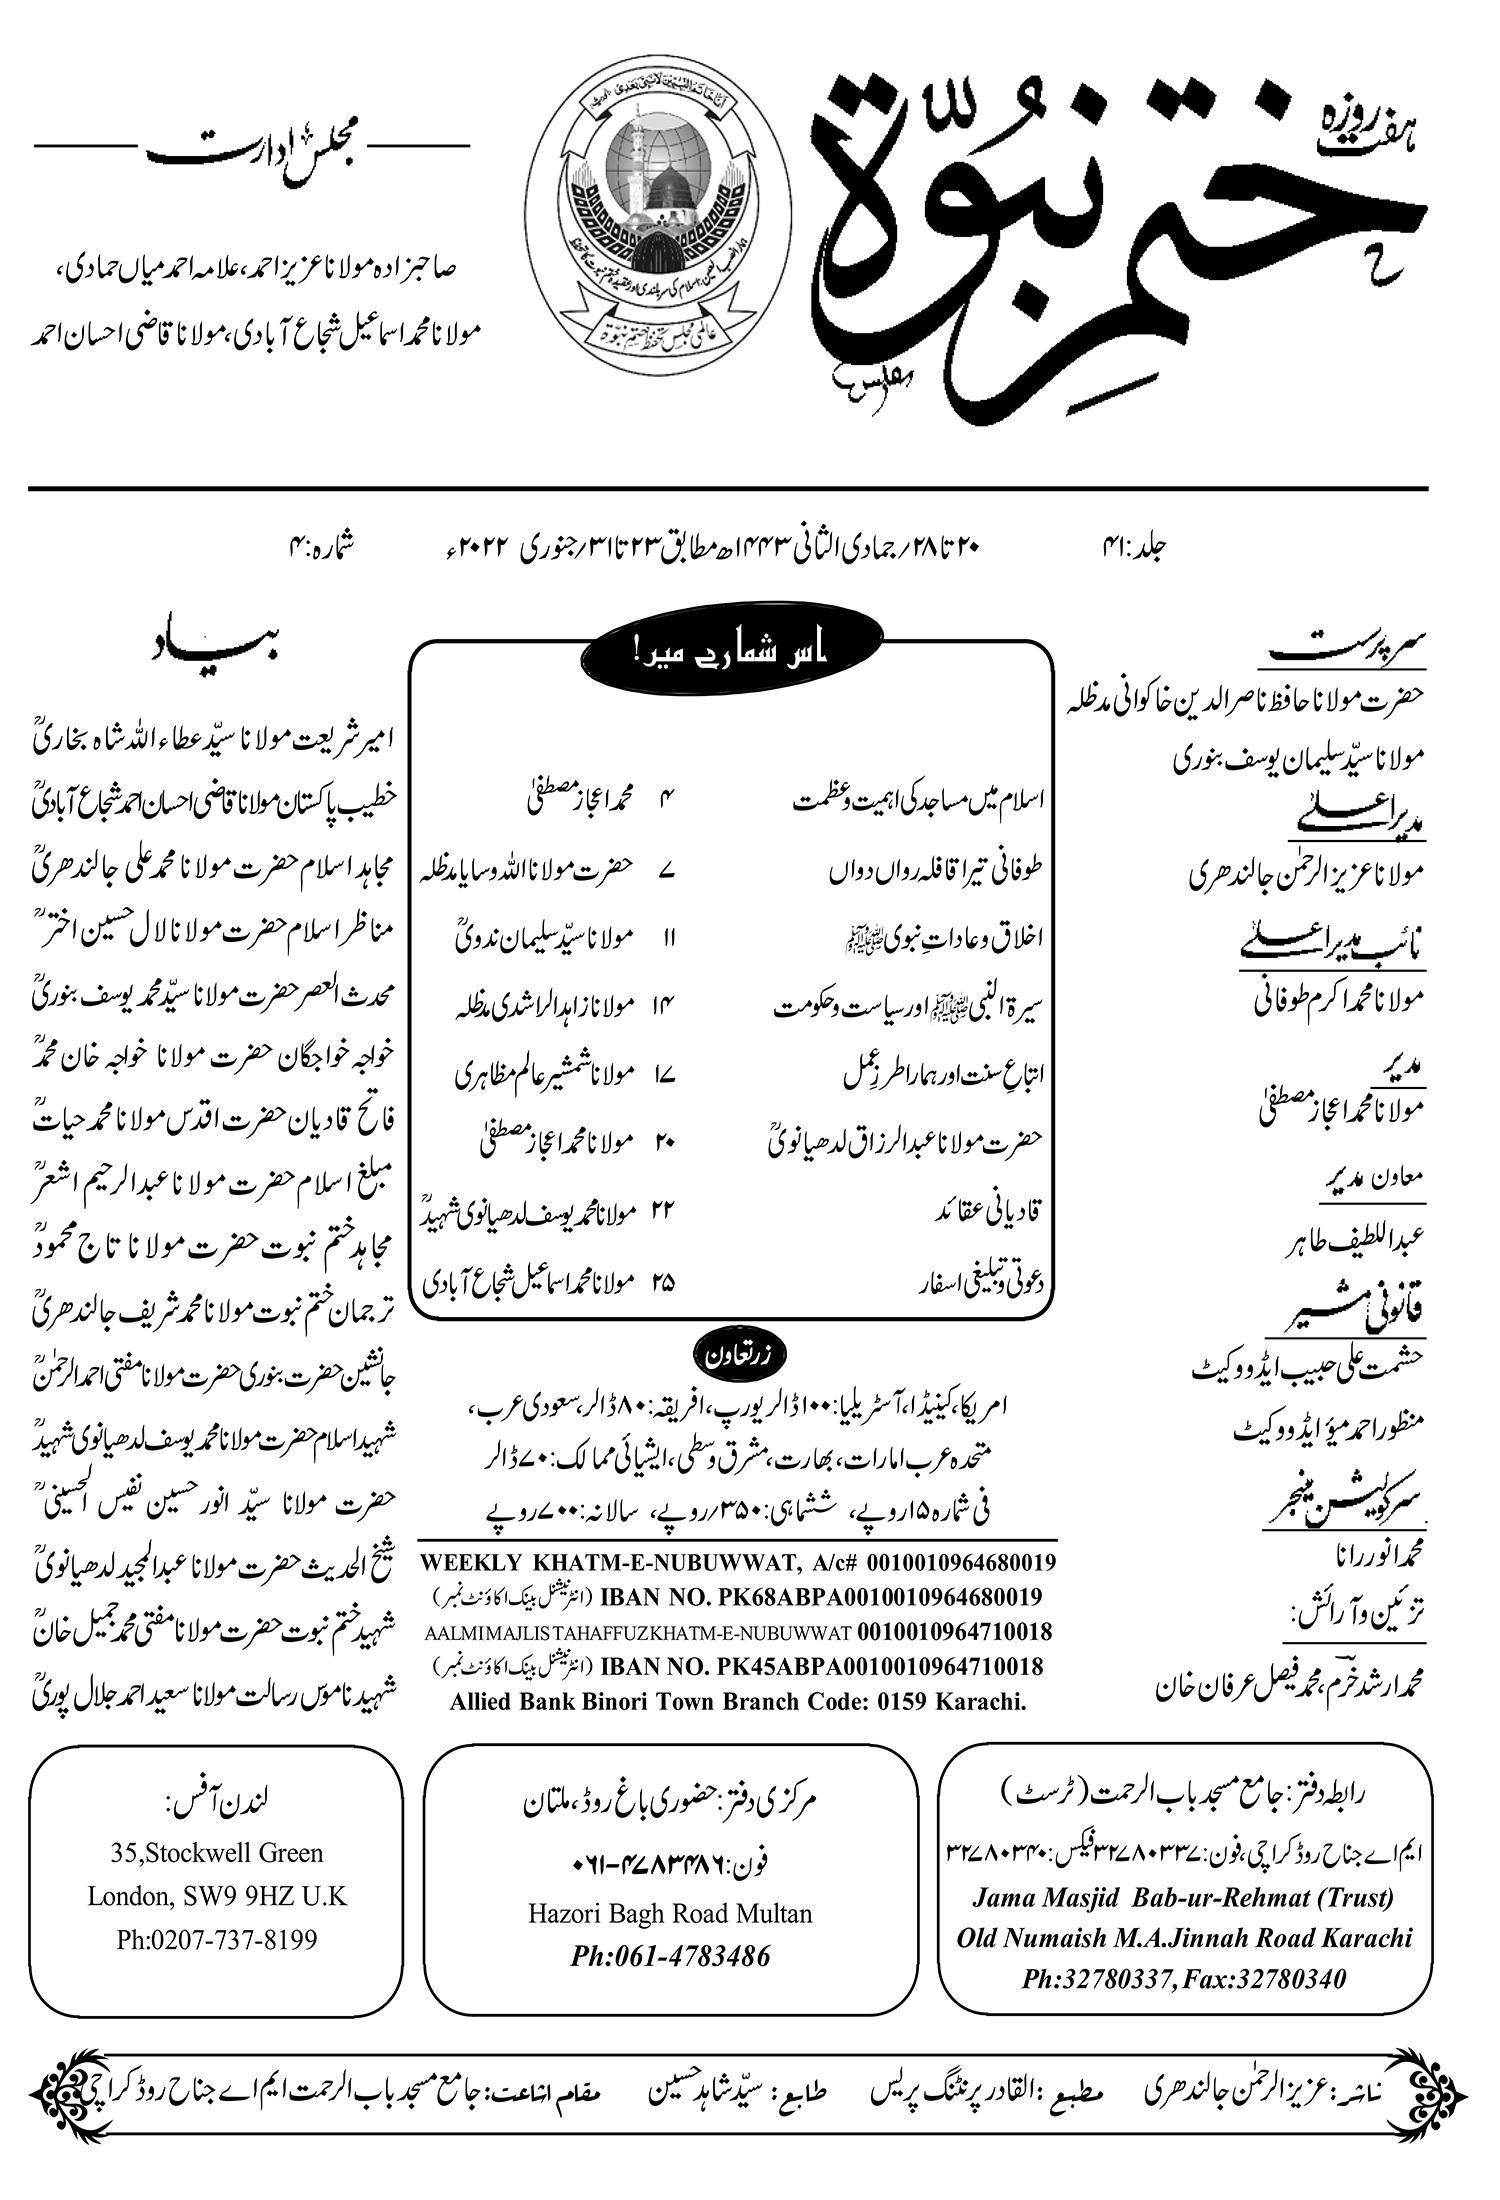 ہفت روزہ
ختم نبوّۃ
انا خاتم النبیین لا نبی بعدی
عالمی مجلس تحفظ ختم نبوۃ
مجلس ادارت
صاحبزادہ مولانا عزیز احمد، علامہ احمد میاں حمادی،
مولانا محمد اسماعیل شجاع آبادی، مولانا قاضی احسان احمد
جلد: ۴۱
۲۰ تا ۲۸/جمادی الثانی ۱۴۴۳ھ مطابق ۲۳ تا ۳۱/جنوری ۲۰۲۲ء
شمارہ: ۴
سرپرست
حضرت مولانا حافظ ناصر الدین خاکوانی مدظلہ
مولانا سیّد سلیمان یوسف بنوری
مدیر اعلےٰ
مولانا عزیز الرحمٰن جالندھری
نائب مدیر اعلےٰ
مولانا محمد اکرم طوفانی
مدیر
مولانا محمد اعجاز مصطفیٰ
معاون مدیر
عبداللطیف طاہر
قانونی مشیر
حشمت علی حبیب ایڈووکیٹ
منظور احمد میؤ ایڈووکیٹ
سرکولیشن منیجر
محمد انور رانا
تزئین و آرائش:
محمد ارشد خرم، محمد فیصل عرفان خان
اس شمارے میں!
اسلام میں مساجد کی اہمیت و عظمت ۴ محمد اعجاز مصطفیٰ
طوفانی تیرا قافلہ رواں دواں ۷ حضرت مولانا اللہ وسایا مدظلہ
اخلاق و عاداتِ نبوی ﷺ ۱۱ مولانا سیّد سلیمان ندویؒ
سیرۃ النبی ﷺ اور سیاست و حکومت ۱۴ مولانا زاہد الراشدی مدظلہ
اتباعِ سنت اور ہمارا طرزِ عمل ۱۷ مولانا شمشیر عالم مظاہری
حضرت مولانا عبدالرزاق لدھیانویؒ ۲۰ مولانا محمد اعجاز مصطفیٰ
قادیانی عقائد ۲۲ مولانا محمد یوسف لدھیانوی شہیدؒ
دعوتی و تبلیغی اسفار ۲۵ مولانا محمد اسماعیل شجاع آبادی
زر تعاون
امریکا، کینیڈا، آسٹریلیا: ۱۰۰ ڈالر یورپ، افریقہ: ۸۰ ڈالر، سعودی عرب،
متحدہ عرب امارات، بھارت، مشرق وسطی، ایشیائی ممالک: ۷۰ ڈالر
فی شمارہ ۱۵ روپے، ششماہی: ۳۵۰/روپے، سالانہ: ۷۰۰ روپے
WEEKLY KHATM-E-NUBUWWAT, A/c# 0010010964680019
IBAN NO. PK68ABPA0010010964680019 (انٹرنیشنل بینک اکاؤنٹ نمبر)
AALMI MAJLIS TAHAFFUZ KHATM-E-NUBUWWAT 0010010964710018
IBAN NO. PK45ABPA0010010964710018 (انٹرنیشنل بینک اکاؤنٹ نمبر)
Allied Bank Binori Town Branch Code: 0159 Karachi.
بیاد
امیر شریعت مولانا سیّد عطاء اللہ شاہ بخاریؒ
خطیب پاکستان مولانا قاضی احسان احمد شجاع آبادیؒ
مجاہد اسلام حضرت مولانا محمد علی جالندھریؒ
مناظر اسلام حضرت مولانا لال حسین اخترؒ
محدث العصر حضرت مولانا سیّد محمد یوسف بنوریؒ
خواجہ خواجگان حضرت مولانا خواجہ خان محمدؒ
فاتح قادیان حضرت اقدس مولانا محمد حیاتؒ
مبلغ اسلام حضرت مولانا عبدالرحیم اشعرؒ
مجاہد ختم نبوت حضرت مولانا تاج محمودؒ
ترجمان ختم نبوت مولانا محمد شریف جالندھریؒ
جانشین حضرت بنوری حضرت مولانا مفتی احمد الرحمٰنؒ
شہید اسلام حضرت مولانا محمد یوسف لدھیانوی شہیدؒ
حضرت مولانا سیّد انور حسین نفیس الحسینیؒ
شیخ الحدیث حضرت مولانا عبدالمجید لدھیانویؒ
شہید ختم نبوت حضرت مولانا مفتی محمد جمیل خانؒ
شہید ناموس رسالت مولانا سعید احمد جلال پوریؒ
رابطہ دفتر: جامع مسجد باب الرحمت (ٹرسٹ)
ایم اے جناح روڈ کراچی، فون: ۳۲۷۸۰۳۳۷ فیکس: ۳۲۷۸۰۳۴۰
Jama Masjid Bab-ur-Rehmat (Trust)
Old Numaish M.A.Jinnah Road Karachi
Ph:32780337, Fax:32780340
مرکزی دفتر: حضوری باغ روڈ، ملتان
فون: ۰۶۱-۴۷۸۳۴۸۶
Hazori Bagh Road Multan
Ph:061-4783486
لندن آفس:
35,Stockwell Green
London, SW9 9HZ U.K
Ph:0207-737-8199
ناشر: عزیز الرحمٰن جالندھری مطبع: القادر پرنٹنگ پریس طابع: سیّد شاہد حسین مقام اشاعت: جامع مسجد باب الرحمت ایم اے جناح روڈ کراچی